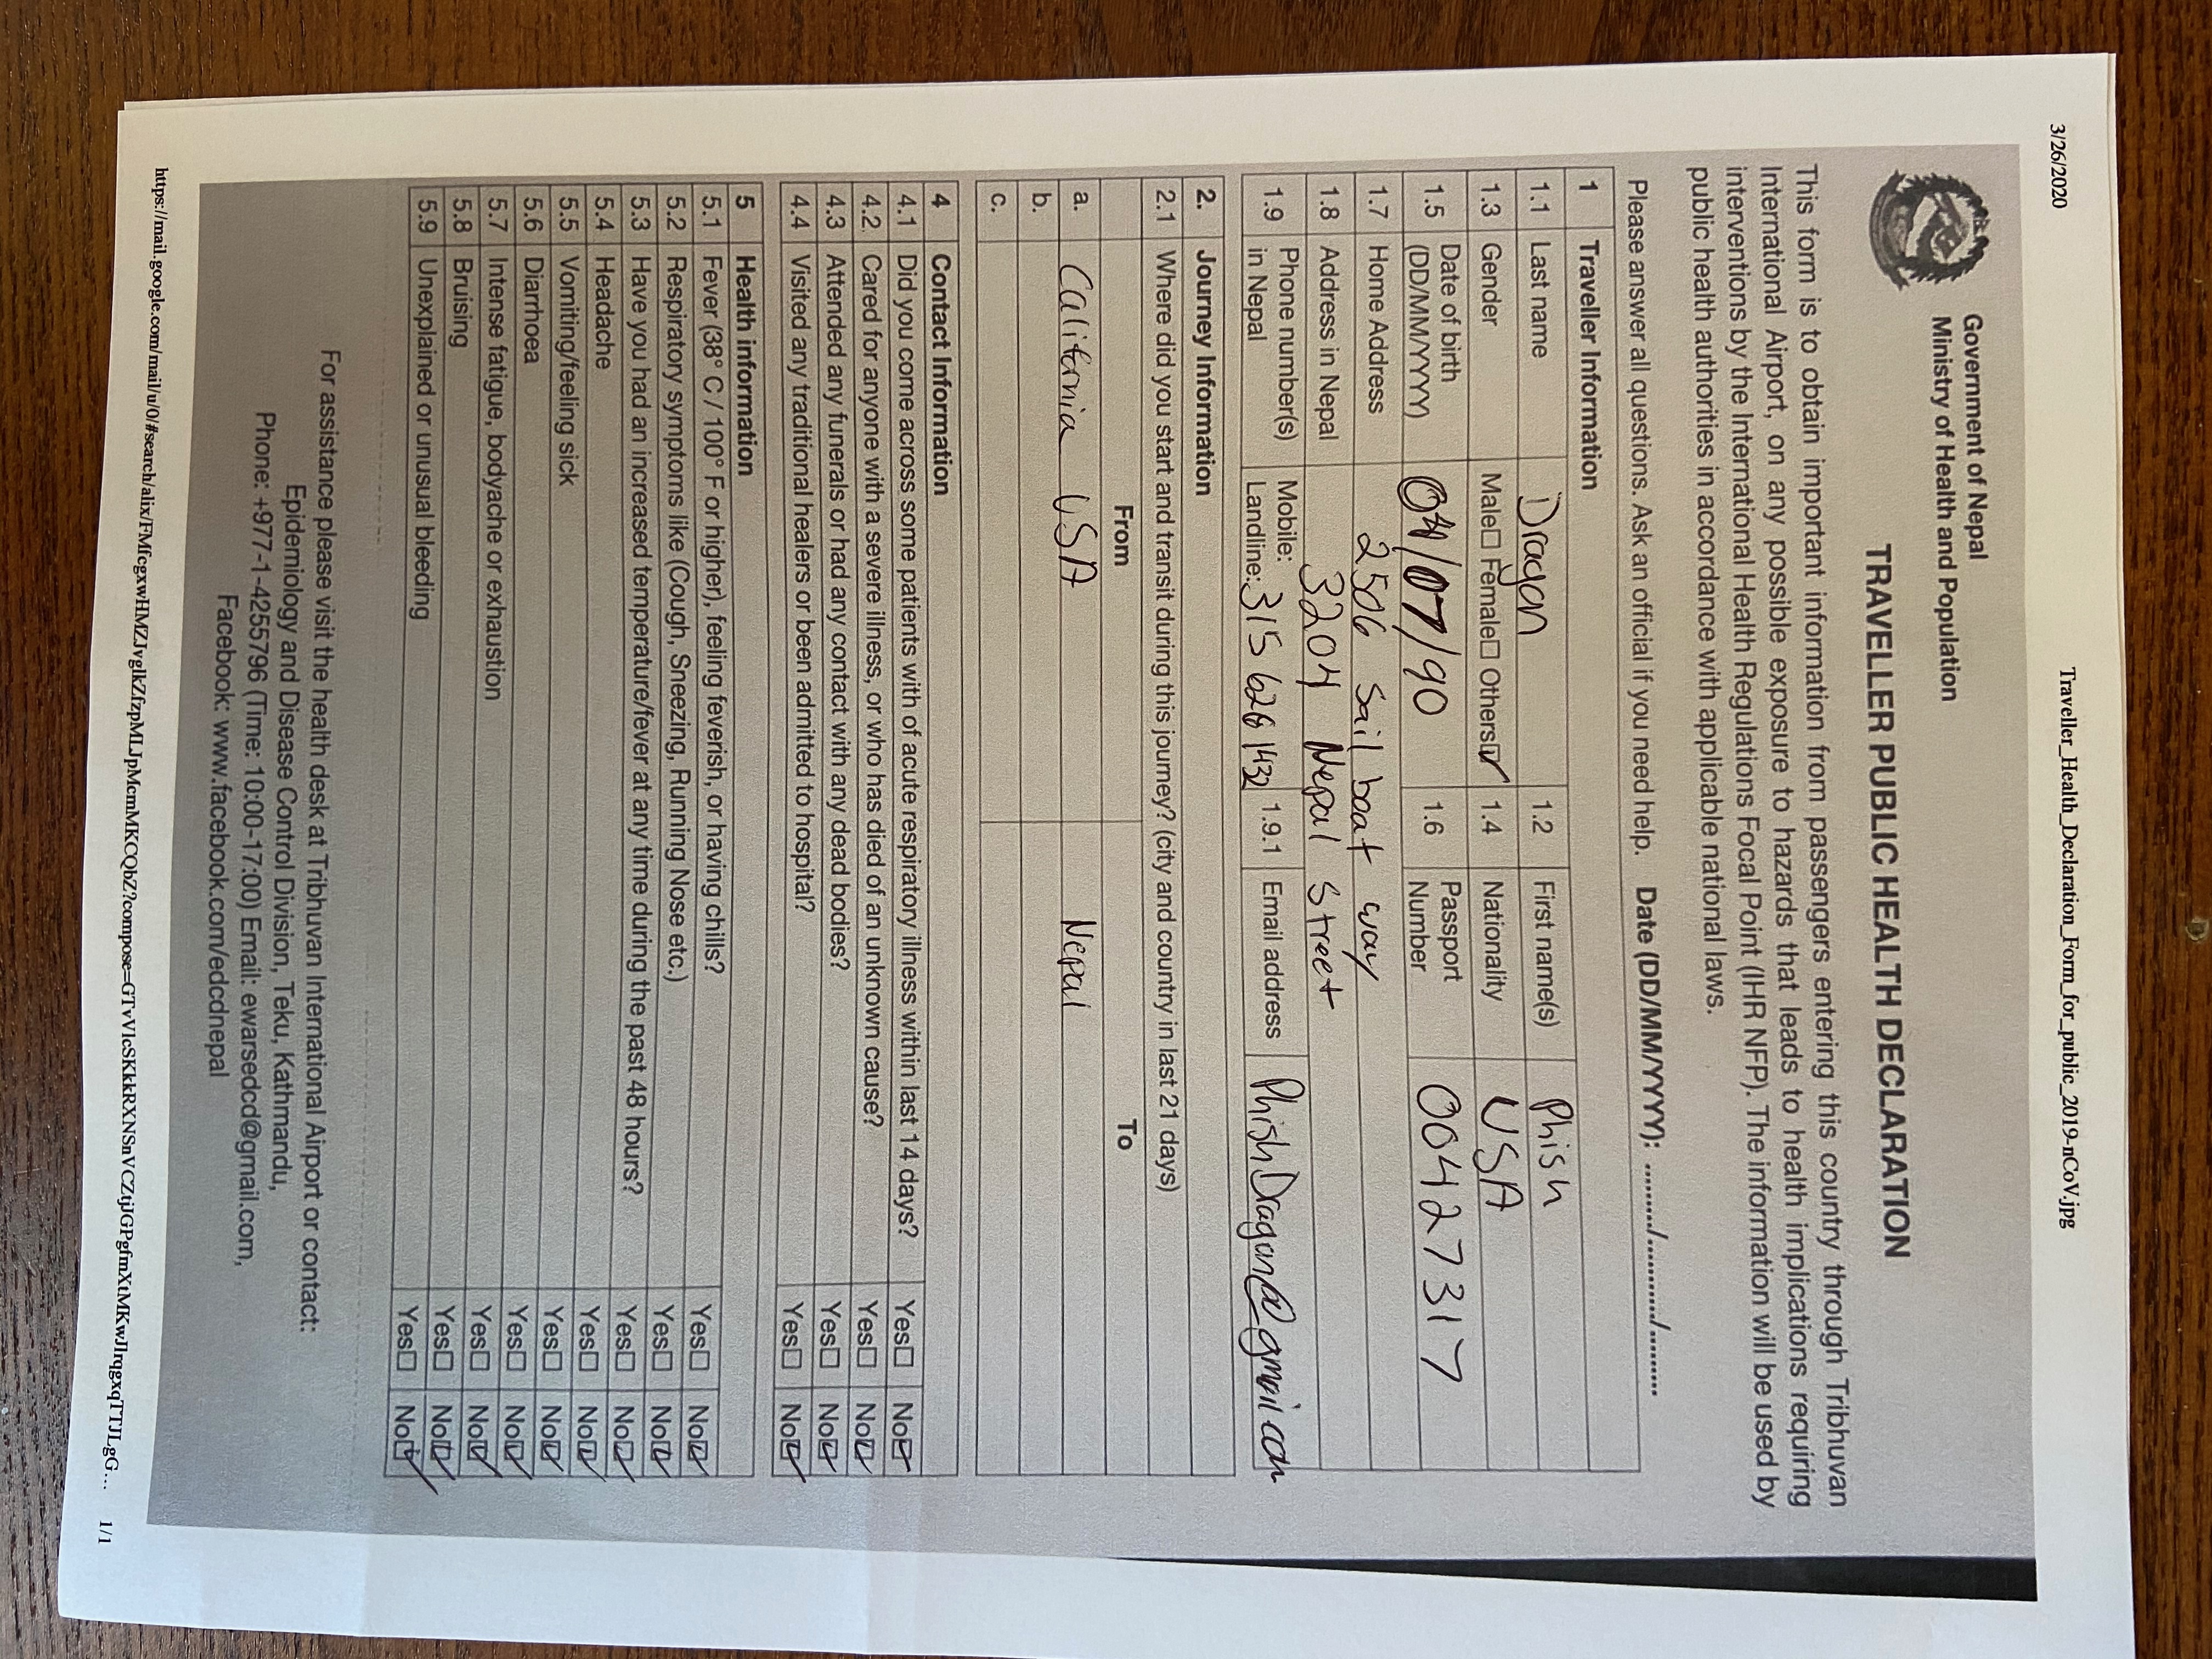 3/26/2020 Traveller_Health_Declaration_Form_for_public_2019-nCoV.jpg
Government of Nepal
Ministry of Health and Population
TRAVELLER PUBLIC HEALTH DECLARATION
This form is to obtain important information from passengers entering this country through Tribhuvan
International Airport, on any possible exposure to hazards that leads to health implications requiring
interventions by the International Health Regulations Focal Point (IHR NFP). The information will be used by
public health authorities in accordance with applicable national laws.
Please answer all questions. Ask an official if you need help. Date (DD/MM/YYYY): ......../........../........
1 Traveller Information
1.1 Last name Dragon 1.2 First name(s) Phish
1.3 Gender Male☐ Female☐ Others☑ 1.4 Nationality USA
1.5 Date of birth (DD/MM/YYYY) 04/07/90 1.6 Passport Number 00427317
1.7 Home Address 2506 Sail boat way
1.8 Address in Nepal 3204 Nepal Street
1.9 Phone number(s) in Nepal Mobile: Landline: 315 626 1432 1.9.1 Email address
2. Journey Information
2.1 Where did you start and transit during this journey? (city and country in last 21 days)
From To
a. California USA Nepal
b.
c.
4 Contact Information
4.1 Did you come across some patients with of acute respiratory illness within last 14 days? Yes☐ No☑
4.2. Cared for anyone with a severe illness, or who has died of an unknown cause? Yes☐ No☑
4.3 Attended any funerals or had any contact with any dead bodies? Yes☐ No☑
4.4 Visited any traditional healers or been admitted to hospital? Yes☐ No☑
5 Health information
5.1 Fever (38° C / 100° F or higher), feeling feverish, or having chills? Yes☐ No☑
5.2 Respiratory symptoms like (Cough, Sneezing, Running Nose etc.) Yes☐ No☑
5.3 Have you had an increased temperature/fever at any time during the past 48 hours? Yes☐ No☑
5.4 Headache Yes☐ No☑
5.5 Vomiting/feeling sick Yes☐ No☑
5.6 Diarrhoea Yes☐ No☑
5.7 Intense fatigue, bodyache or exhaustion Yes☐ No☑
5.8 Bruising Yes☐ No☑
5.9 Unexplained or unusual bleeding Yes☐ No☑
For assistance please visit the health desk at Tribhuvan International Airport or contact:
Epidemiology and Disease Control Division, Teku, Kathmandu,
Phone: +977-1-4255796 (Time: 10:00-17:00) Email: ewarsedcd@gmail.com,
Facebook: www.facebook.com/edcdnepal
1/1